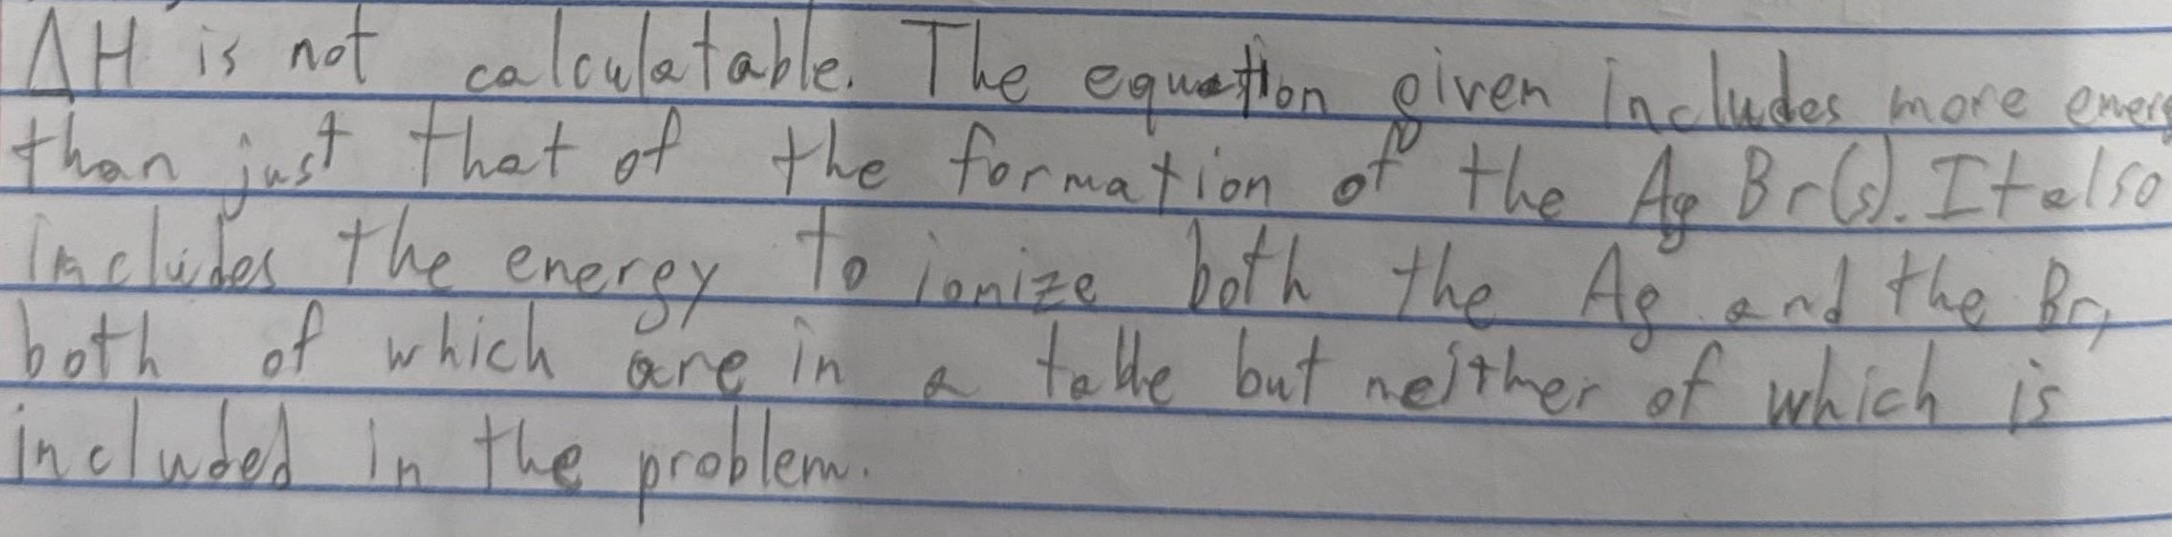 ΔH is not calculatable. The equation given includes more energ
than just that of the formation of the AgBr(s). It also
includes the energy to ionize both the Ag and the Br,
both of which are in a table but neither of which is
included in the problem.